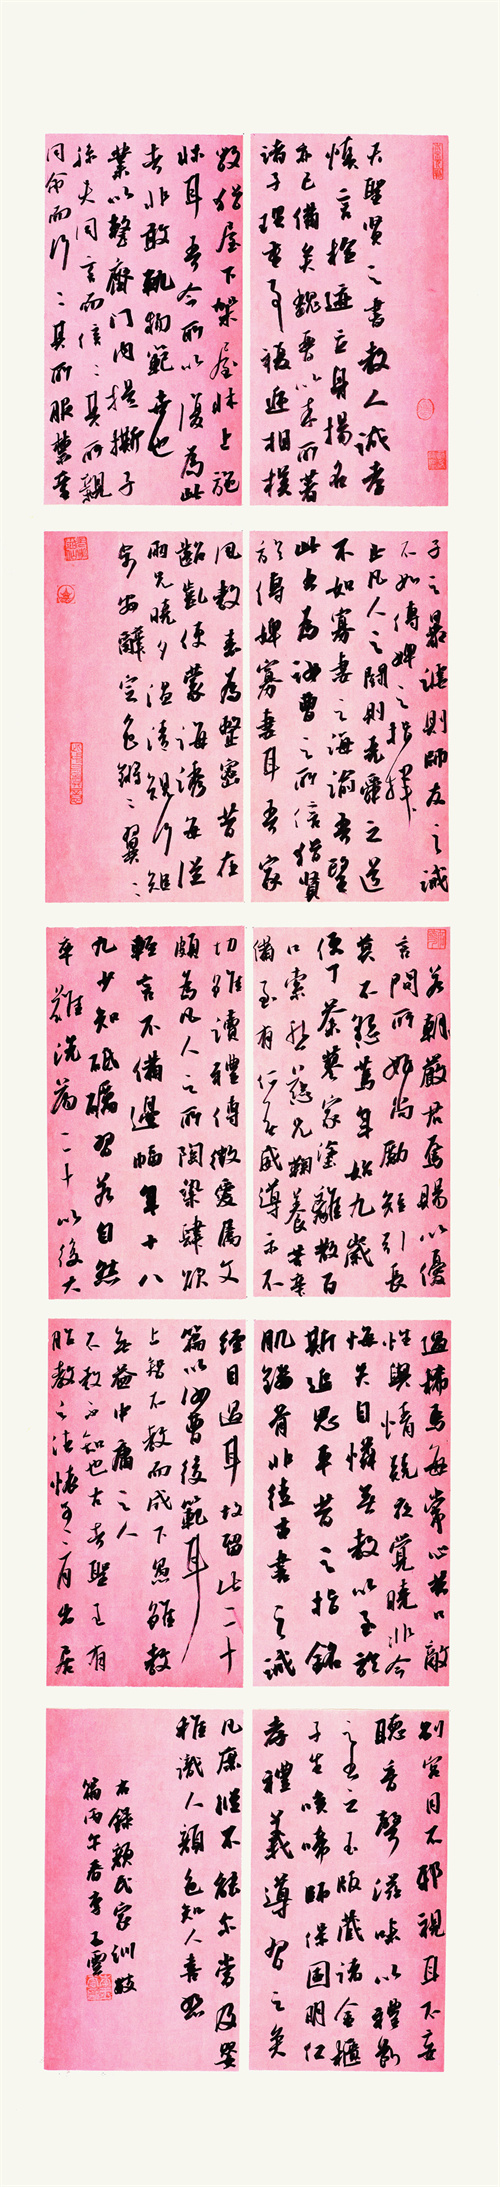 夫聖賢之書教人誠孝
慎言檢迹立身揚名
亦已備矣魏晉以来所著
諸子理重事複遞相模
斅猶屋下架屋牀上施
牀耳吾今所以復為此
者非敢軌物範世也
業以整齊門内提撕子
孫夫同言而信〻其所親
同命而行〻其所服禁童
子之暴謔則師友之誡
不如傅婢之指揮
止凡人之鬪則堯舜之道
不如寡妻之誨諭吾望
此書為汝曹之所信猶賢
於傅婢寡妻耳吾家
風教素為整密昔在
齠齔便蒙誨誘每從
兩兄曉夕温凊規行矩
步安辭定色鏘〻翼〻
若朝嚴君焉賜以優
言問所好尚勵短引長
莫不懇篤年始九歲
便丁荼蓼家塗離散百
口索然慈兄鞠養苦辛
備至有仁無威導示不
切雖讀禮傳微愛屬文
頗為凡人之所陶染肆欲
輕言不備邊幅年十八
九少知砥礪習若自然
卒難洗盪二十以後大
過稀焉每常心共口敵
性與情競夜覺曉非今
悔失自憐無教以至於
斯追思平昔之指銘
肌鏤骨非徒古書之誡
經目過耳故留此二十
篇以汝曹後範耳
上智不教而成下愚雖教
無益中庸之人
不教不知也古者聖王有
胎教之法懷子三月出居
別宫目不邪視耳不妄
聽音聲滋味以禮節
之書之玉版藏諸金匱
子生咳㖷師保固明仁
孝禮義導習之矣
凡庶縱不能爾當及嬰
稚識人顏色知人喜怒
右錄顏氏家訓數
篇丙午春李子雲